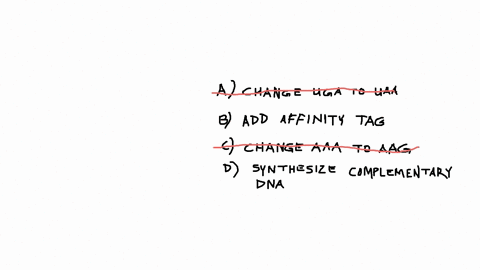 A) CHANGE UGA TO UAA
B) ADD AFFINITY TAG
C) CHANGE AAA TO AAG
D) SYNTHESIZE COMPLEMENTARY
DNA